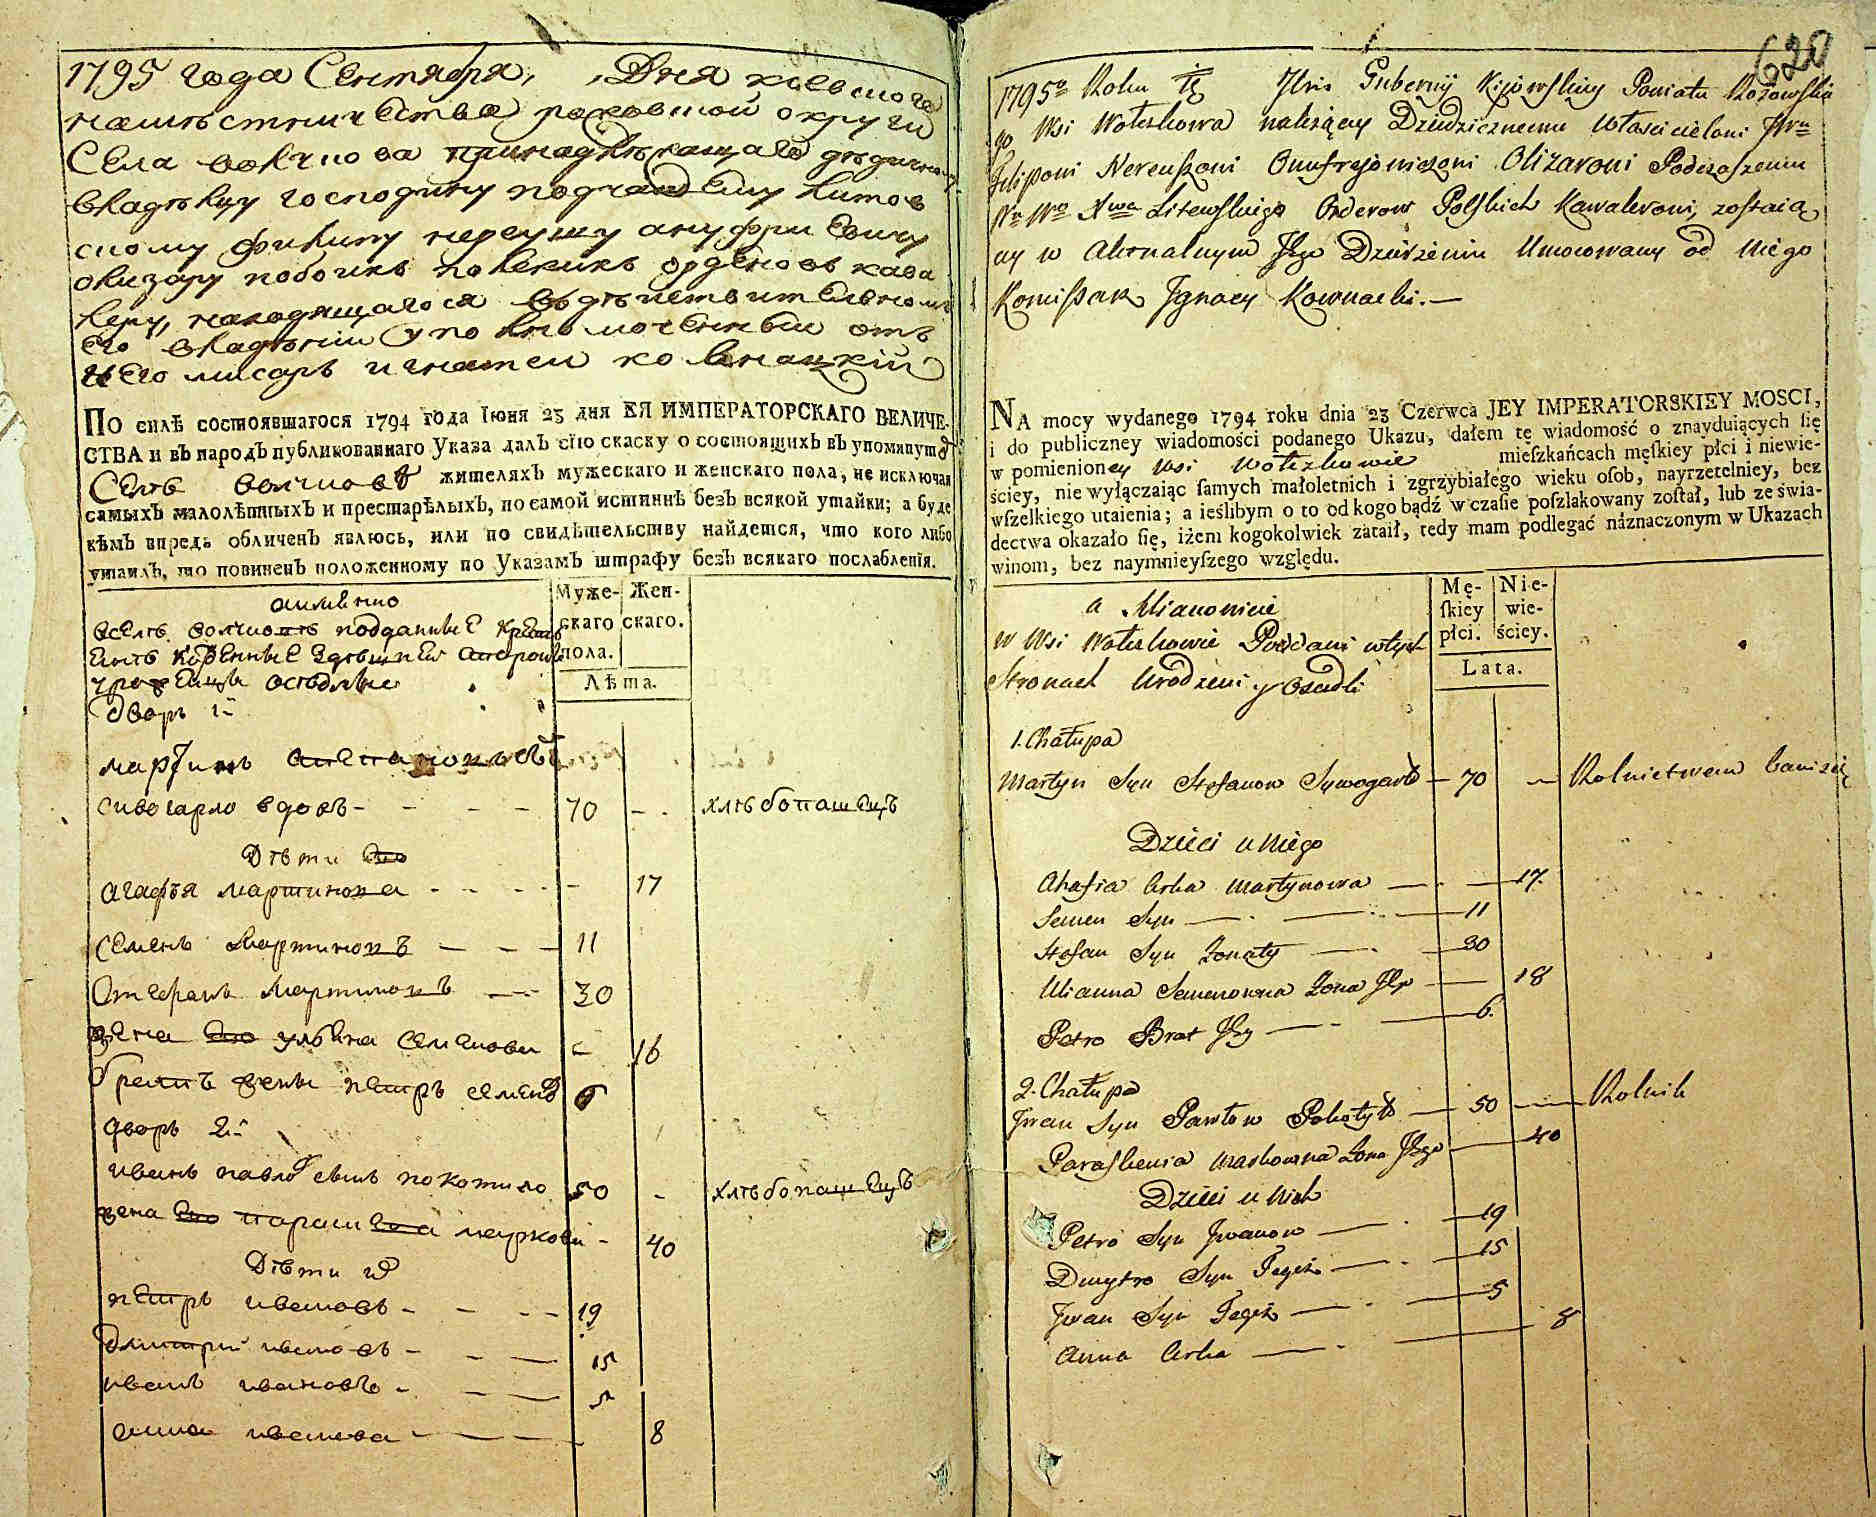 1795 года Сентября, Дня киевского
наместничества роховской округи
Села волчкова принадлежащаго дедичному
владельцу господину подчашему литов
скому филипу нереушу ануфриевичу
олизару
леру, находящагося въ действительномъ
его владении уполномоченный отъ
него
По силѣ состоявшагося 1794 года Іюня 23 дня ЕЯ ИМПЕРАТОРСКАГО ВЕЛИЧЕ-
СТВА и въ народъ публикованнаго Указа далъ сію скаску о состоящихъ въ упомянутой
Селѣ волчковѣ жителяхъ мужескаго и женскаго пола, не исключая
самыхъ малолѣтныхъ и престарѣлыхъ, по самой истиннѣ безъ всякой утайки; а буде
кѣмъ впредь обличенъ явлюсь, или по свидѣтельству найдется, что кого либо
утаилъ, то повиненъ положенному по Указамъ штрафу безъ всякаго послабленія.
аимянно
Муже-
скаго
пола.
Жен-
скаго.
Лѣта.
дворъ 1й
мартинъ
сивогарло вдовъ 70 хлѣбопашецъ
Дѣти его
агафья мартинова 17
семенъ мартиновъ 11
мартиновъ 30
жена его семенова 16
братъ жены петръ семеновъ 6
дворъ 2й
иванъ павловъ сынъ покотило 50 хлѣбопашецъ
жена его маркова 40
Дѣти их
петръ ивановъ 19
дмитрий ивановъ 15
иванъ ивановъ 5
анна иванова 8
620
1795o Roku Xbris Gubernij Kijowskiey Powiatu
go Wsi Wołczkowa należącey Dziedzicznemu Właścicielowi JWu
Filipowi Nereuszowi Onufrejowiczowi Olizarowi Podczaszemu
Litewskiego Orderow Polskich Kawalerowi, zostaią
cy w Aktualnym Jego Dzierżeniu Umocowany od Niego
Komissarz Jgnacy Kownacki.—
NA mocy wydanego 1794 roku dnia 23 Czerwca JEY IMPERATORSKIEY MOSCI,
i do publiczney wiadomości podanego Ukazu, dałem tę wiadomość o znayduiących ſię
w pomienioney Wsi Wołczkowie mieſzkańcach męſkiey płci i niewie-
ściey, nie wyłączaiąc ſamych małoletnich i zgrzybiałego wieku oſob, nayrzetelniey, bez
wſzelkiego utaienia; a ieślibym o to od kogo bądź w czaſie poſzlakowany zoſtał, lub ze świa-
dectwa okazało ſię, iżem kogokolwiek zataił, tedy mam podlegać náznaczonym w Ukazach
winom, bez naymnieyſzego względu.
a Mianowicie
w Wsi Wołczkowie Poddani wtych
Stronach Urodzeni y Osiedli
Mę-
ſkiey
płci.
Nie-
wie-
ściey.
Lata.
1. Chałupa
Martyn Syn Stefanow Sywogarło 70
Dzieci u Niego
Ahafia Corka Martynowa 17.
Semen Syn 11
Stefan Syn Żonaty 30
Ulianna Semenowna Żona Jego 18
Petro Brat Jey 6.
2. Chałupa
Jwan Syn Pawłow Pokotyło 50 Rolnik
Paraskewia Markowna Żona Jego 40
Dzieci u Nich
Petro Syn Jwanow 19
Dmytro Syn Tegoż 15
Jwan Syn Tegoż 5
Anna Corka 8